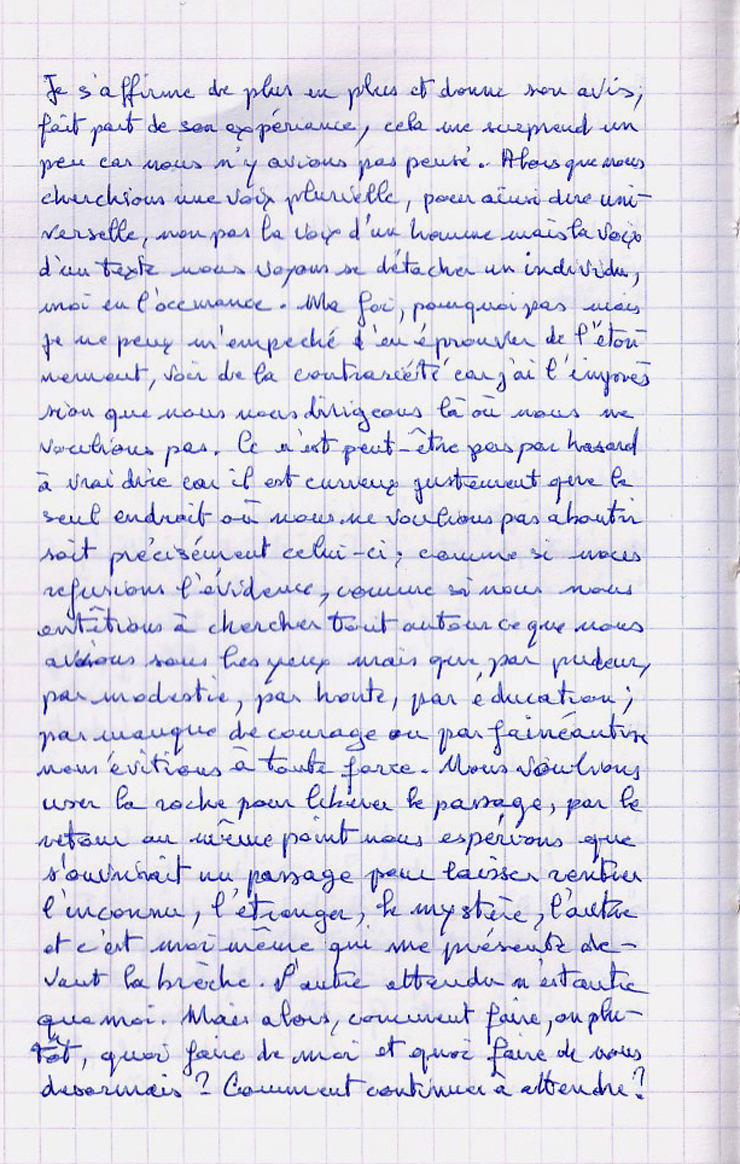 Je s'affirme de plus en plus et donne son avis,
fait part de son expériance, cela me surprend un
peu car nous n'y avions pas pensé. Alors que nous
cherchions une voix plurielle, pour ainsi dire uni-
verselle, non pas la voix d'un homme mais la voix
d'un texte nous voyons se détacher un individu,
moi en l'occurance. Ma foi, pourquoi pas mais
je ne peux m'empeché d'en éprouver de l'éton-
nement, voir de la contrariété car j'ai l'impres
sion que nous nous dirigeons là où nous ne
voulions pas. Ce n'est peut-être pas par hasard
à vrai dire car il est curieux justement que le
seul endroit où nous ne voulions pas aboutir
soit précisément celui-ci ; comme si nous
refusions l'évidence, comme si nous nous
entêtions à chercher tout autour ce que nous
avions sous les yeux mais que, par pudeur,
par modestie, par honte, par éducation ;
par manque de courage ou par fainéantise
nous évitions à toute force. Nous voulions
user la roche pour libérer le passage, par le
retour au même point nous espérions que
s'ouvrirait un passage pour laisser rentrer
l'inconnu, l'étranger, le mystère, l'autre
et c'est moi même qui me présente de-
vant la brèche. L'autre attendu n'est autre
que moi. Mais alors, comment faire, ou plu-
tôt, quoi faire de moi et quoi faire de nous
desormais ? Comment continuer à attendre ?